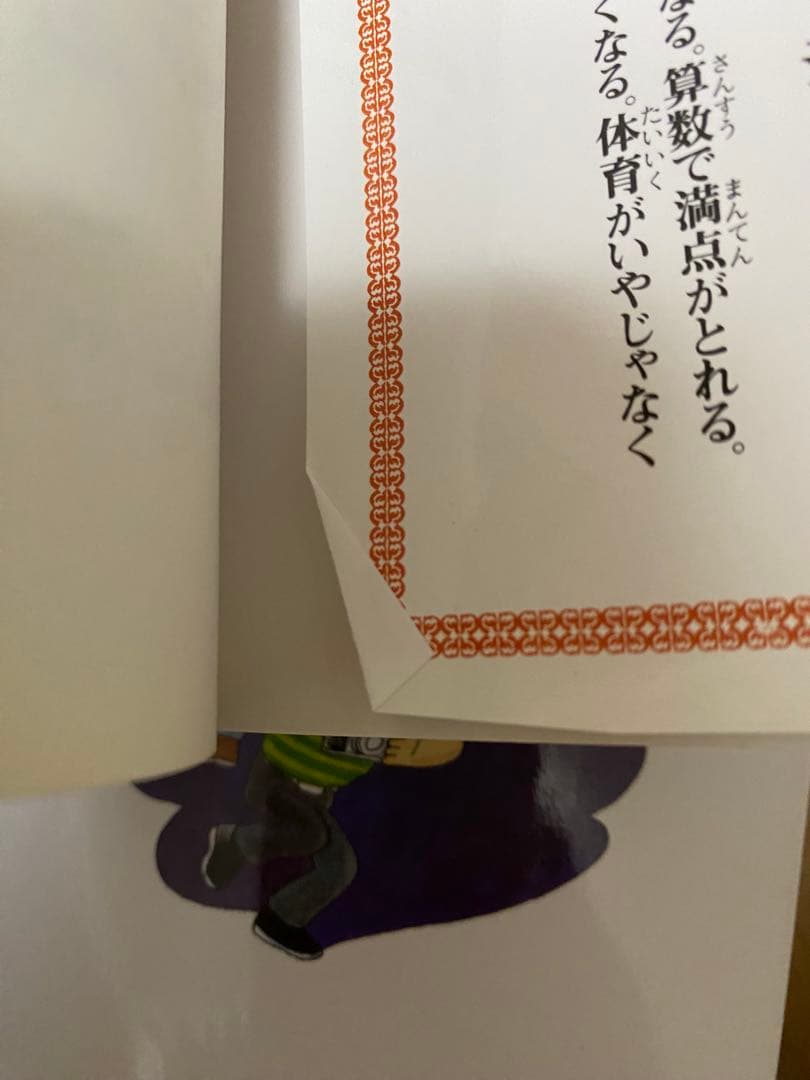 なる。算数で満点がとれる。
くなる。体育がいやじゃなく